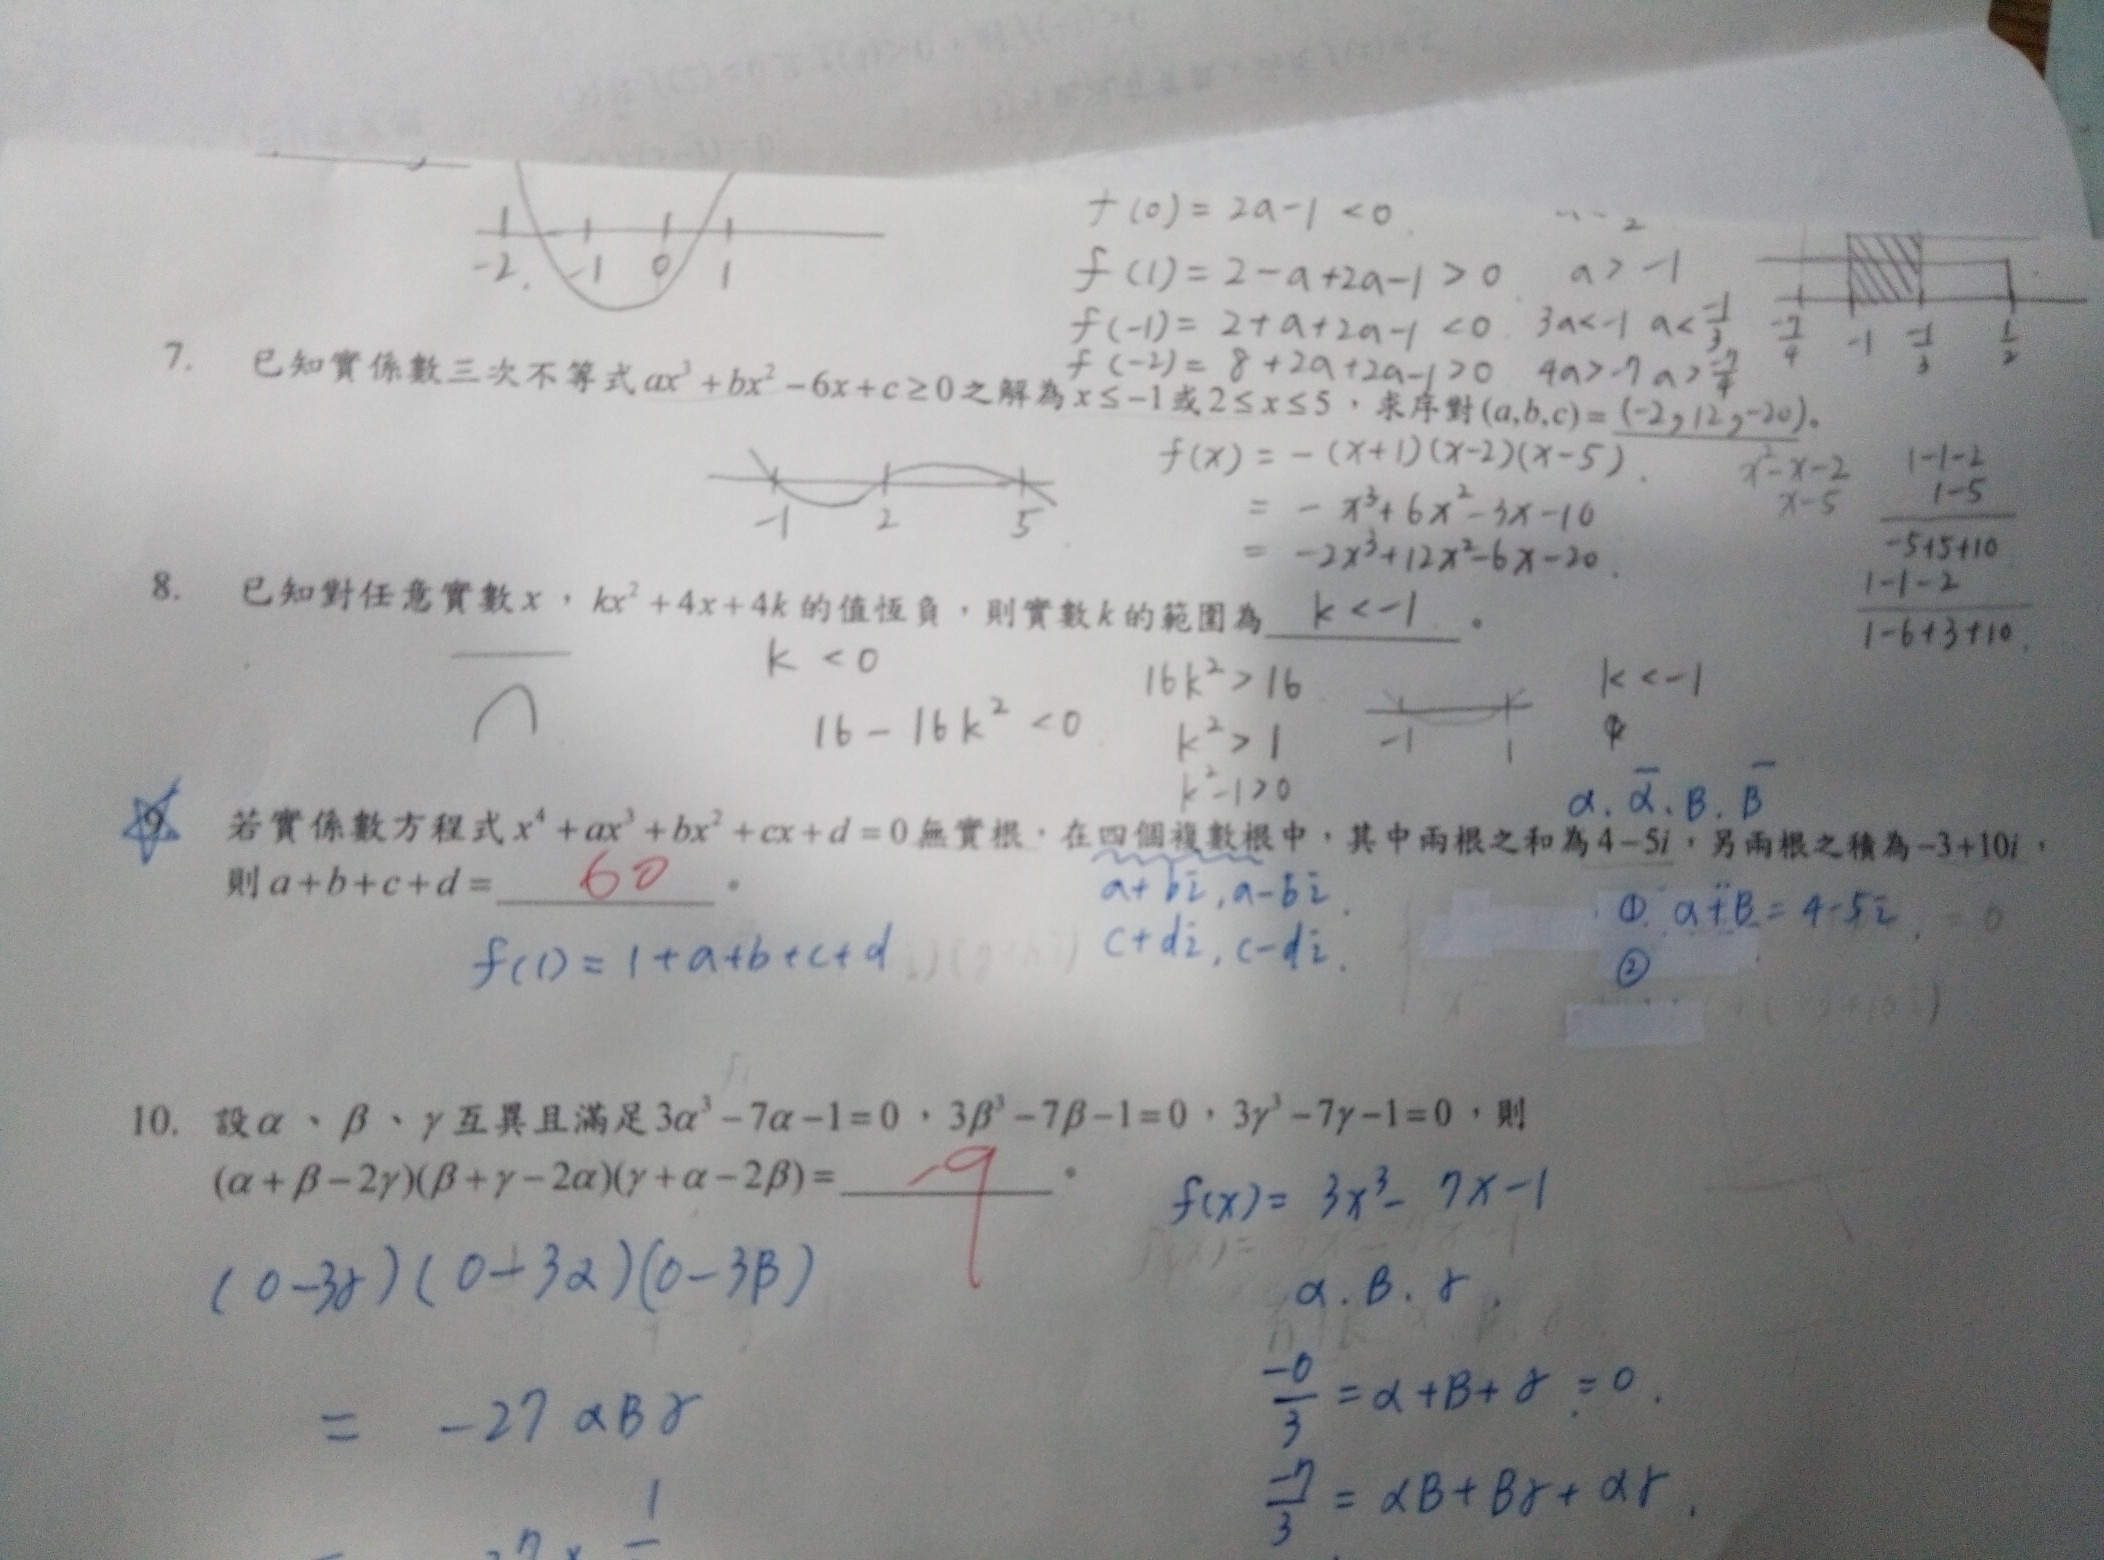 -2 -1 0 1
f(0)=2a-1<0
f(1)=2-a+2a-1>0 a>-1
f(-1)=2+a+2a-1<0 3a<-1 a<-1/3
f(-2)=8+2a+2a-1>0 4a>-7 a>-7/4
-7/4 -1 -1/3 1/2
7. 已知實係數三次不等式ax³+bx²-6x+c≥0之解為x≤-1或2≤x≤5，求序對(a,b,c)=(-2,12,-20)。
-1 2 5
f(x)=-(x+1)(x-2)(x-5)
=-x³+6x²-3x-10
=-2x³+12x²-6x-20
x²-x-2
x-5
1-1-2
1-5
-5+5+10
1-1-2
1-6+3+10
8. 已知對任意實數x，kx²+4x+4k的值恆負，則實數k的範圍為 k<-1。
k<0
16-16k²<0
16k²>16
k²>1
k²-1>0
-1 1
k<-1
α.ᾱ.β.β̄
9. 若實係數方程式x⁴+ax³+bx²+cx+d=0無實根，在四個複數根中，其中兩根之和為4-5i，另兩根之積為-3+10i，
則a+b+c+d= 60。
f(1)=1+a+b+c+d
a+bi,a-bi.
c+di,c-di.
① α+β=4-5i
②
10. 設α、β、γ互異且滿足3α³-7α-1=0，3β³-7β-1=0，3γ³-7γ-1=0，則
(α+β-2γ)(β+γ-2α)(γ+α-2β)= -9。
(0-3γ)(0-3α)(0-3β)
= -27αβγ
f(x)=3x³-7x-1
α.β.γ.
-0/3=α+β+γ=0.
-7/3=αβ+βγ+αγ.